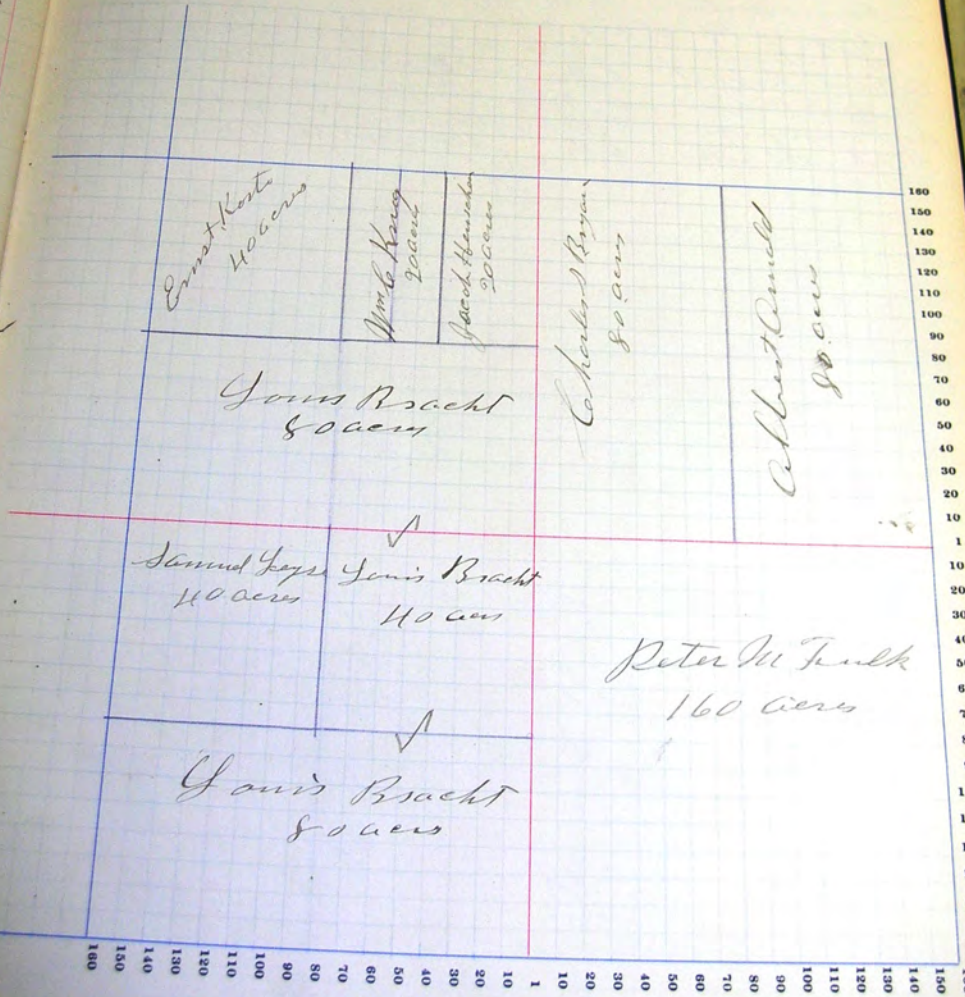 Ernst Korte
40 acres
Wm C King
20 acres
Jacob
20 acres
Charles S Bryan
80 acres
Albert Arnold
80 acres
Louis Bracht
80 acres
Samuel
40 acres
Louis Bracht
40 acres
Peter M Faulk
160 acres
Louis Bracht
80 acres
160
150
140
130
120
110
100
90
80
70
60
50
40
30
20
10
1
10
20
160
150
140
130
120
110
100
90
80
70
60
50
40
30
20
10
1
10
20
30
40
50
60
70
80
90
100
110
120
130
140
150